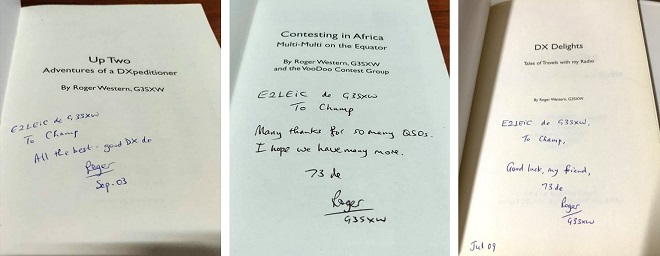 Up Two
Adventures of a DXpeditioner
By Roger Western, G3SXW
E2LEIC de G3SXW
To Champ
All the best - good DX de
Roger
Sep. 03
Contesting in Africa
Multi-Multi on the Equator
By Roger Western, G3SXW
and the VooDoo Contest Group
E2LEIC de G3SXW
To Champ
Many thanks for so many QSOs.
I hope we have many more.
73 de
Roger
G3SXW
DX Delights
Tales of Travels with my Radio
By Roger Western, G3SXW
E2LEIC de G3SXW.
To Champ,
Good luck, my friend,
73 de
Roger
G3SXW
Jul 09